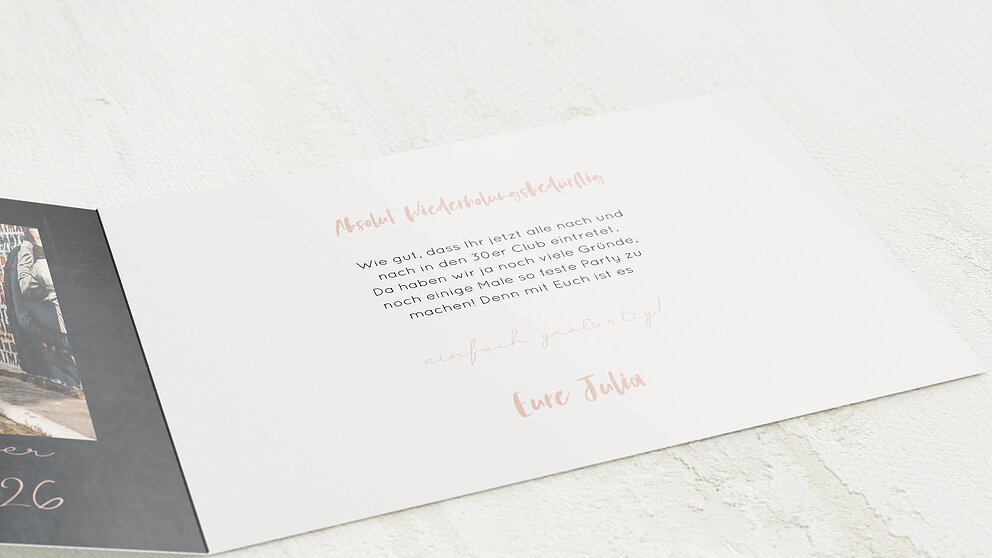 Absolut Wiederholungsbedürftig
Wie gut, dass Ihr jetzt alle nach und
nach in den 30er Club eintretet.
Da haben wir ja noch viele Gründe,
noch einige Male so feste Party zu
machen! Denn mit Euch ist es
einfach großartig!
Eure Julia
er
26